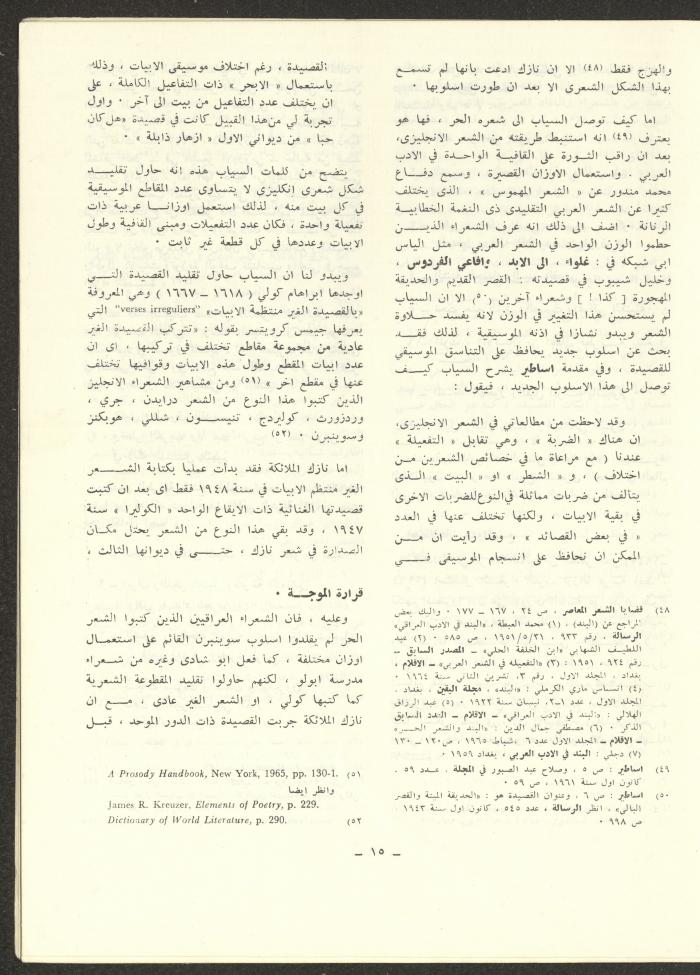 والهزج فقط (٤٨) الا ان نازك ادعت بانها لم تسمـــع
بهذا الشكل الشعرى الا بعد ان طورت اسلوبها ٠
اما كيف توصل السياب الى شعره الحر ، فها هو
يعترف (٤٩) انه استنبط طريقته من الشعر الانجليزى،
بعد ان راقب الثــورة على القافيــة الواحــدة في الادب
العربي ٠ واستعمال الاوزان القصيرة ، وسمع دفــاع
محمد مندور عن « الشعر المهموس » ، الذى يختلف
كثيرا عن الشعر العربي التقليدى ذى النغمة الخطابيــة
الرنانة ٠ اضف الى ذلك انه عرف الشعراء الذيــــن
حطموا الوزن الواحد في الشعر العربي ، مثل الياس
ابي شبكه في : غلواء ، الى الابد ، وافاعي الفردوس ،
وخليل شيبوب في قصيدته : القصر القديم والحديقة
المهجورة [ كذا ! ] وشعراء آخرين (٥٠) الا ان السياب
لم يستحسن هذا التغيير في الوزن لانه يفسد حــلاوة
الشعر ويبدو نشازا في اذنه الموسيقية ، لذلك فقــد
بحث عن اسلوب جديد يحافظ على التناسق الموسيقي
للقصيدة ، وفي مقدمة اساطير يشرح السياب كيــف
توصل الى هذا الاسلوب الجديد ، فيقول :
وقد لاحظت من مطالعاتي في الشعر الانجليزى،
ان هناك « الضربة » ، وهي تقابل « التفعيلة »
عندنا ( مع مراعاة ما في خصائص الشعرين مــن
اختلاف ) ، و « الشطر » او « البيت » الــذى
يتالف من ضربات مماثلة في النوع للضربات الاخرى
في بقية الابيات ، ولكنها تختلف عنها في العدد
« في بعض القصائد » ، وقد رأيت ان مـــن
الممكن ان نحافظ على انسجام الموسيقى فـــي
٤٨) قضايا الشعر المعاصر ، ص ٢٤ ، ١٦٧ – ١٧٧ ٠ واليك بعض
المراجع عن (البند) ، (١) محمد العبطة ، «البند في الادب العراقي»
الرسالة ، رقم ٩٣٣ ، ١٩٥١/٥/٢١ ، ص ٥٨٥ ٠ (٢) عبد
اللطيف الشهابي «ابن الخلفة الحلي» – المصدر السابق –
رقم ٩٢٤ ، ١٩٥١ : (٣) «التفعيله في الشعر العربي» – الاقلام ،
بغداد ، المجلد الاول ، رقم ٣، تشرين الثاني سنة ١٩٦٤ ٠
(٤) انستاس ماري الكرملي : «البند» ، مجلة اليقين ، بغداد ،
المجلد الاول ، عدد ١ــ٢، نيسان سنة ١٩٢٢ ٠ (٥) عبد الرزاق
الهلالي : «البند في الادب العراقي» – الاقلام – العدد السابق
الذكر ٠ (٦) مصطفى جمال الدين : «البند والشعر الحــر»
– الاقلام – المجلد الاول عدد ٦ ،شباط ١٩٦٥ ، ص١٢٠ – ١٣٠
(٧) دجلي : البند في الادب العربي ، بغداد ١٩٥٩ ٠
٤٩) اساطير : ص ٥ ، وصلاح عبد الصبور في المجلة ، عــدد ٥٩ ،
كانون اول سنة ١٩٦١ ، ص ٥٩ ٠
٥٠) اساطير : ص ٦ ، وعنوان القصيدة هو : «الحديقة الميتة والقصر
البالي» ، انظر الرسالة ، عدد ٥٤٥ ، كانون اول سنة ١٩٤٣ ،
ص ٩٩٨ ٠
القصيدة ، رغم اختلاف موسيقى الابيات ، وذلك
باستعمال « الابحر » ذات التفاعيل الكاملة ، على
ان يختلف عدد التفاعيل من بيت الى آخر ٠ واول
تجربة لي من هذا القبيل كانت في قصيدة «هل كان
حبا » من ديواني الاول « ازهار ذابلة » ٠
يتضح من كلمات السياب هذه انه حاول تقليـــد
شكل شعرى انكليزى لا يتساوى عدد المقاطع الموسيقية
في كل بيت منه ، لذلك استعمل اوزانـــا عربية ذات
تفعيلة واحدة ، فكان عدد التفعيلات ومبنى القافية وطول
الابيات وعددها في كل قطعة غير ثابت ٠
ويبدو لنا ان السياب حاول تقليد القصيدة التــي
اوجدها ابراهام كولي ( ١٦١٨ – ١٦٦٧ ) وهي المعروفة
«بالقصيدة الغير منتظمة الابيات» "verses irreguliers" التي
يعرفها جيمس كرويتسر بقوله : «تتركب القصيدة الغير
عادية من مجموعة مقاطع تختلف في تركيبها ، اى ان
عدد ابيات المقطع وطول هذه الابيات وقوافيها تختلف
عنها في مقطع اخر » (٥١) ومن مشاهير الشعراء الانجليز
الذين كتبوا هذا النوع من الشعر درايدن ، جري ،
وردزورث ، كولبردج ، تنيســـون ، شللي ، هوبكنز
وسوينبرن ٠ (٥٢)
اما نازك الملائكة فقد بدأت عمليا بكتابة الشــــعر
الغير منتظم الابيات في سنة ١٩٤٨ فقط اى بعد ان كتبت
قصيدتها الغنائية ذات الايقاع الواحد « الكوليرا » سنة
١٩٤٧ ، وقد بقي هذا النوع من الشعر يحتل مكــان
الصدارة في شعر نازك ، حتـــى في ديوانها الثالث ،
قرارة الموجــة ٠
وعليه ، فان الشعراء العراقيين الذين كتبوا الشعر
الحر لم يقلدوا اسلوب سوينبرن القائم على استعمــال
اوزان مختلفة ، كما فعل ابو شادى وغيره من شــعراء
مدرسة ابولو ، لكنهم حاولوا تقليد المقطوعة الشعرية
كما كتبها كولي ، او الشعر الغير عادى ، مـــع ان
نازك الملائكة جربت القصيدة ذات الدور الموحد ، قبــل
٥١) A Prosody Handbook, New York, 1965, pp. 130-1.
وانظر ايضا
James R. Kreuzer, Elements of Poetry, p. 229.
٥٢) Dictionary of World Literature, p. 290.
– ١٥ –